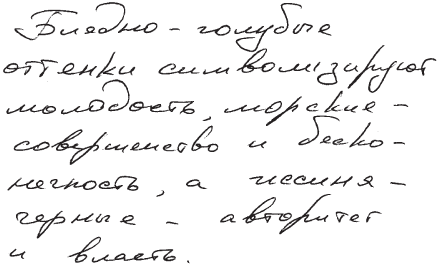 Бледно-голубые
оттенки символизируют
молодость, морские -
совершенство и беско-
нечность, а иссиня-
черные - авторитет
и власть.